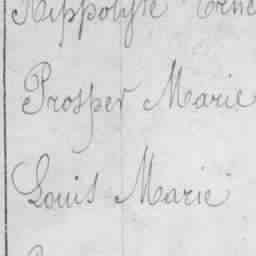 Hippolyte
Prosper Marie
Louis Marie